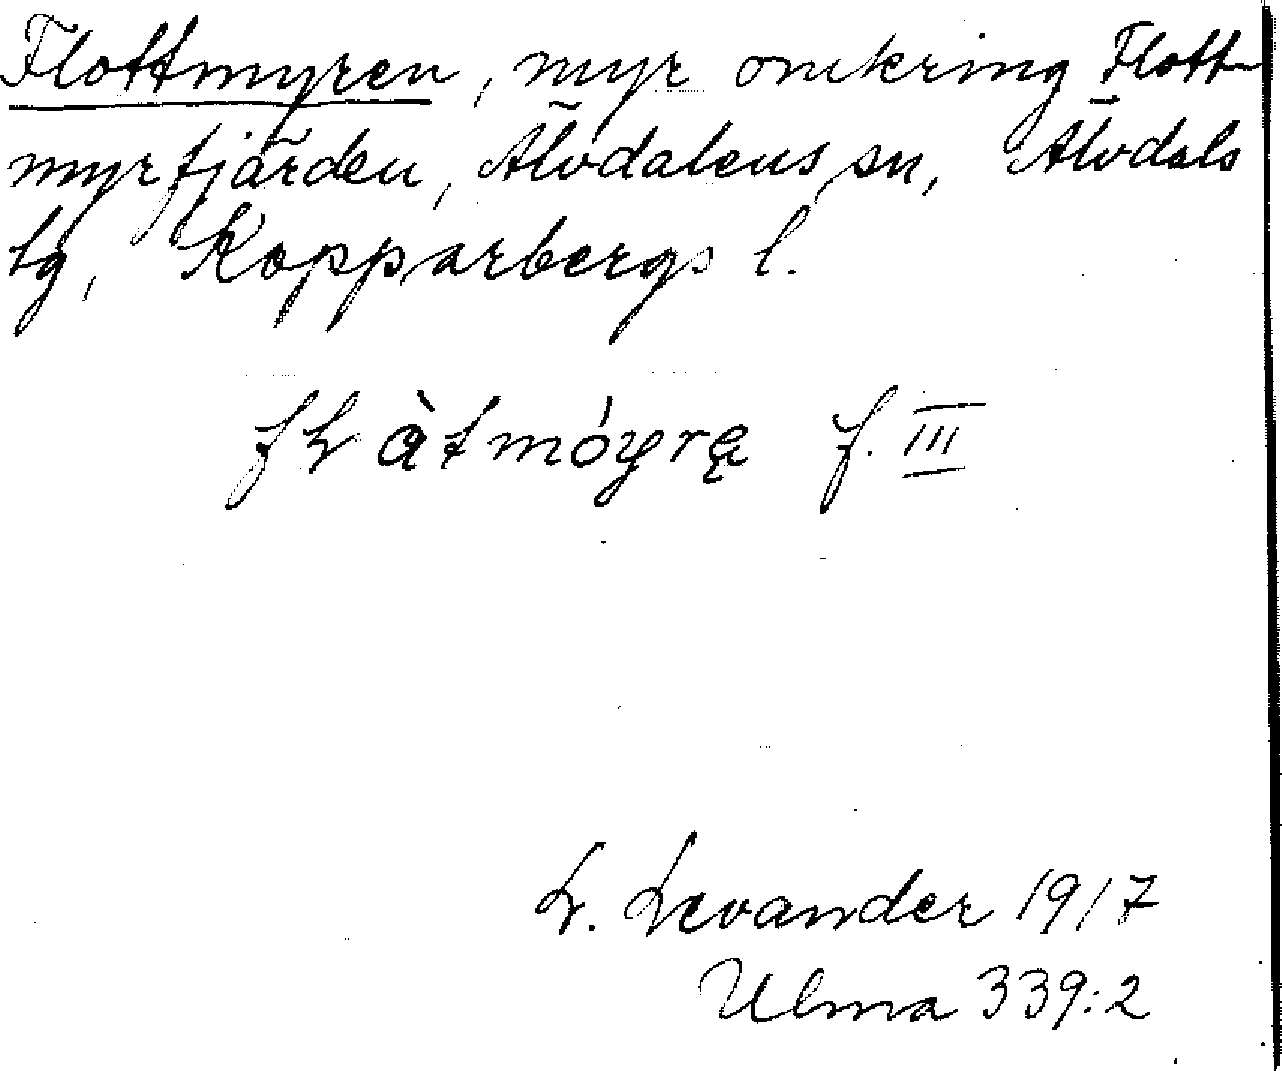 Flottmyren, myr omkring Flott-
myrfjärden, Älvdalens sn, Älvdals
tg, Kopparbergs l.
f. III
L. Levander 1917
Ulma 339:2